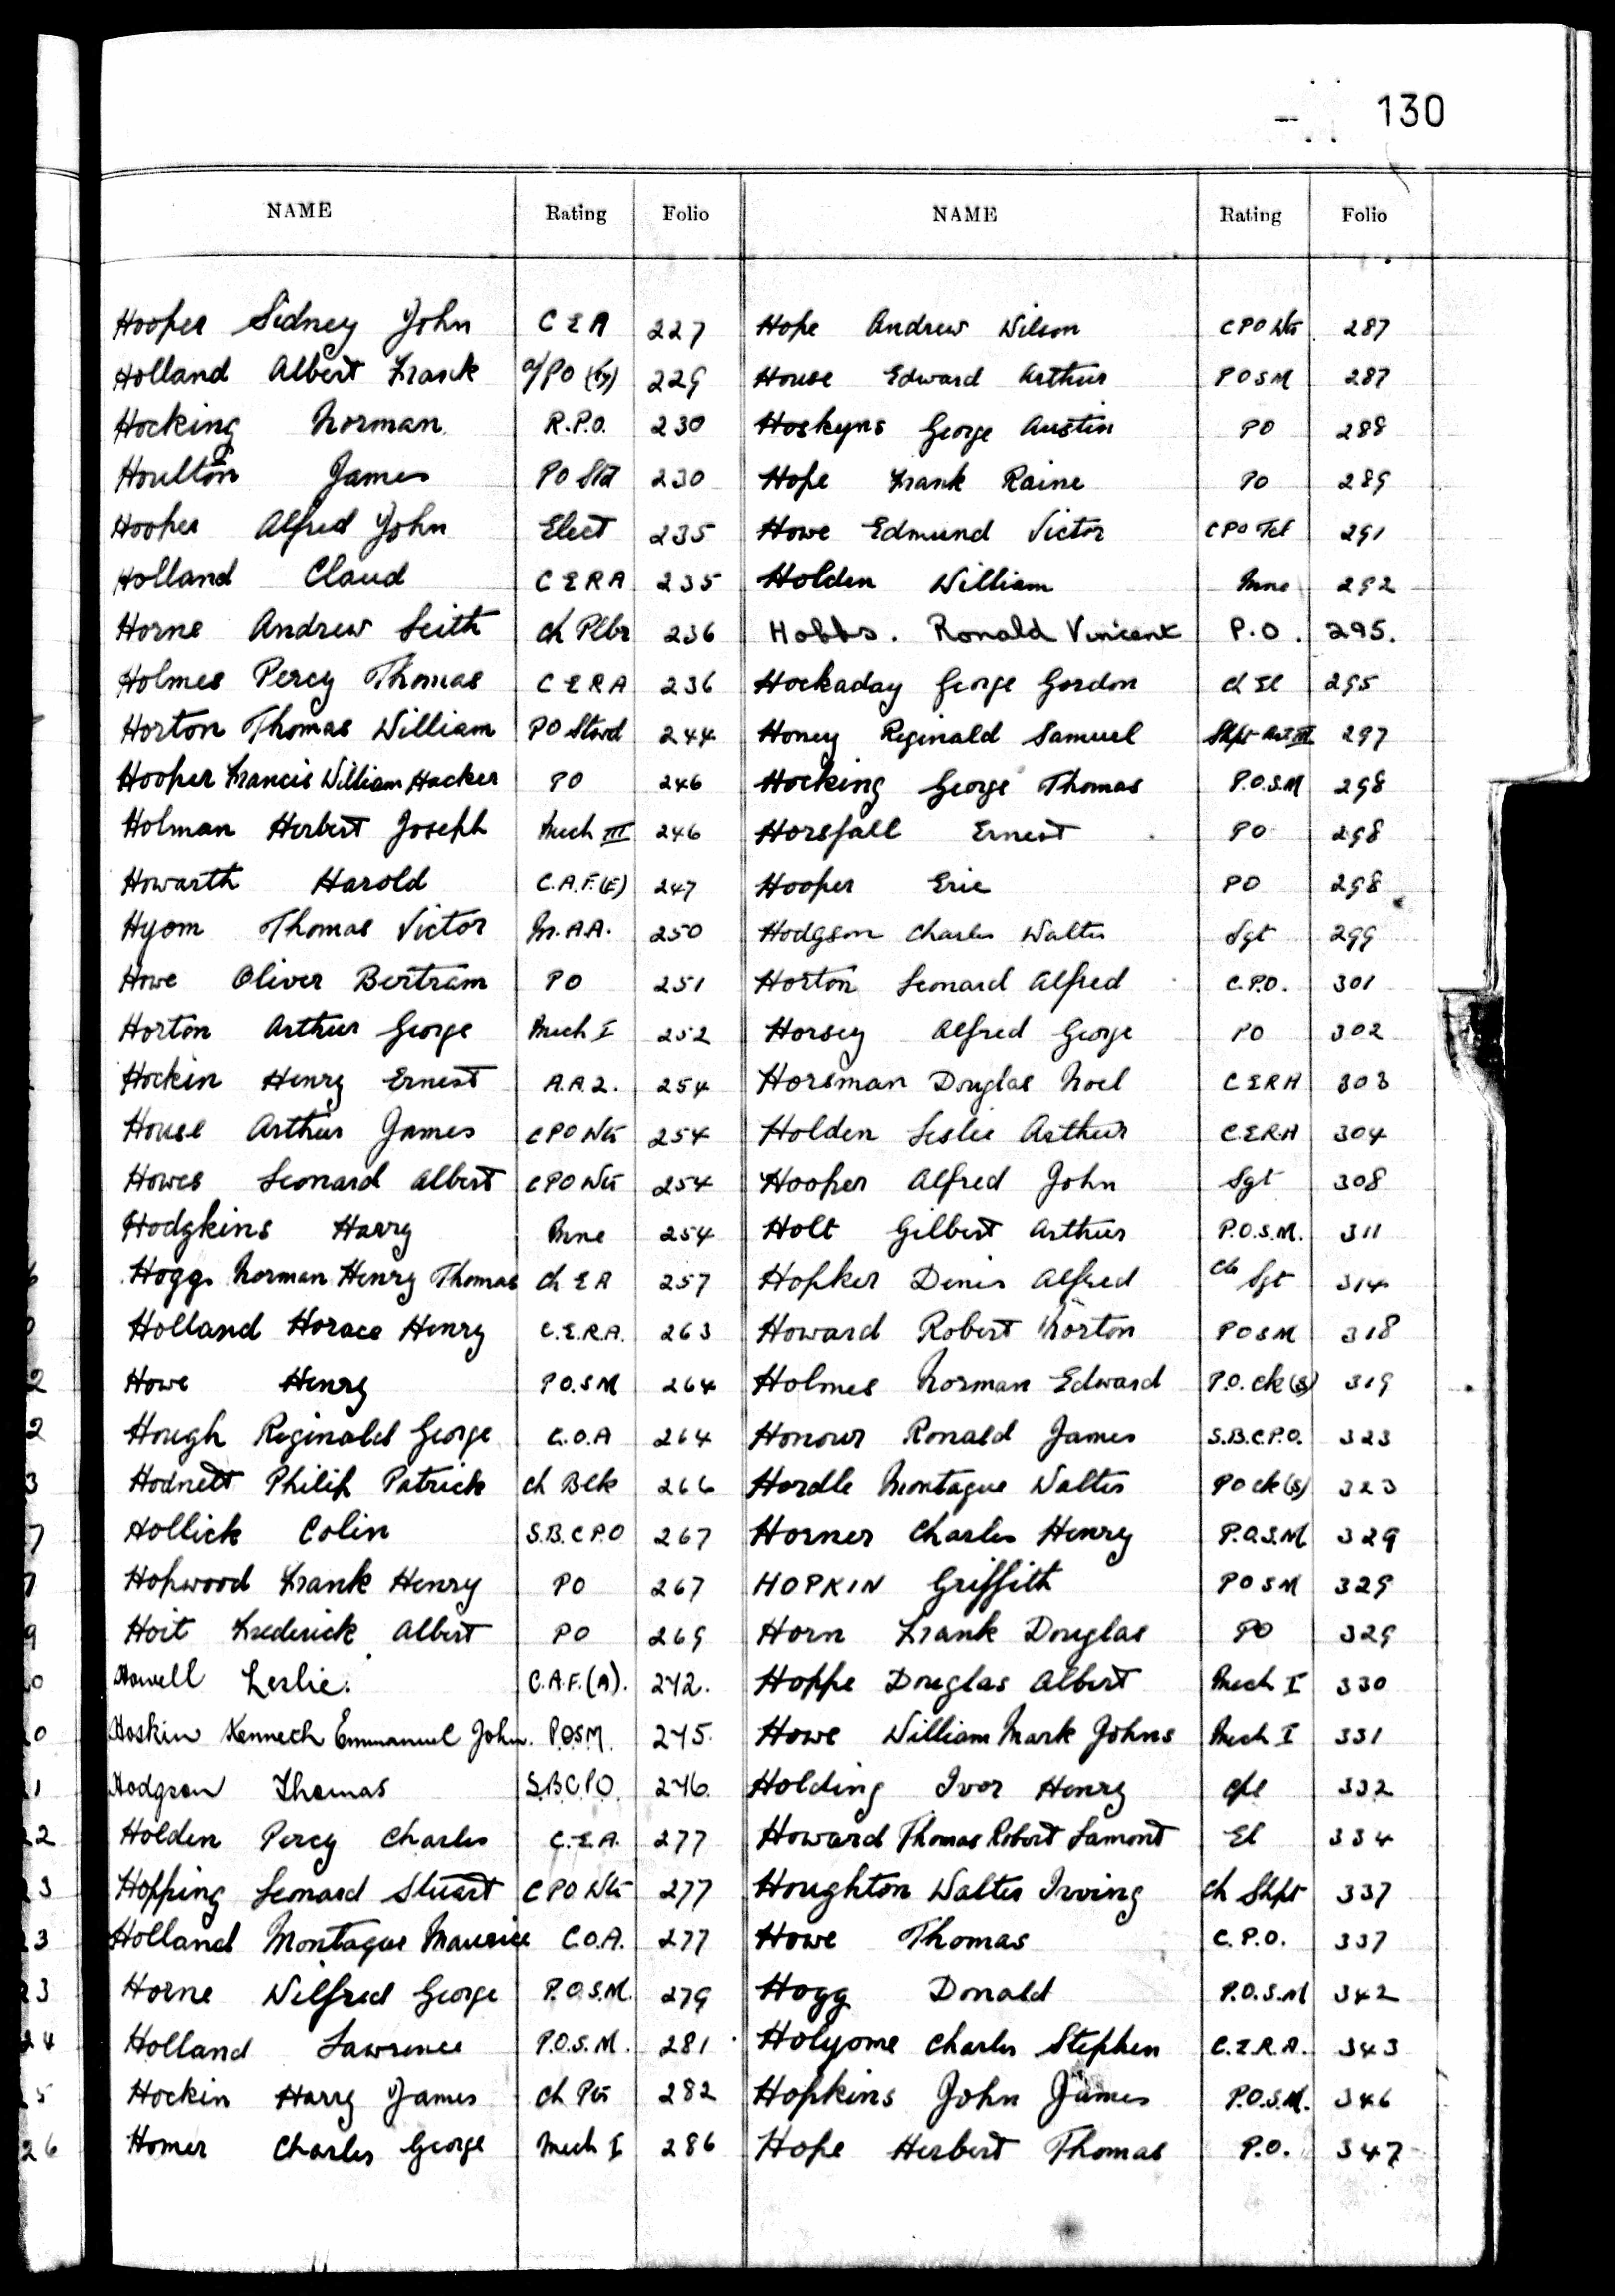 130
NAME Rating Folio NAME Rating Folio
Hooper Sidney John C E A 227 Hope Andrew Wilson CPO Wtr 287
Holland Albert Frank a/PO (Ty) 229 House Edward Arthur POSM 287
Hocking Norman R.P.O. 230 Hoskyns George Austin PO 288
Houlton James PO Std 230 Hope Frank Raine PO 289
Hooper Alfred John Elect 235 Howe Edmund Victor CPO Tel 291
Holland Claud C E R A 235 Holden William Mne 292
Horne Andrew Leith Ch Plbr 236 Hobbs. Ronald Vincent P.O. 295.
Holmes Percy Thomas C E R A 236 Hockaday George Gordon Ch El 295
Horton Thomas William PO Stwd 244 Honey Reginald Samuel Shpt Art III 297
Hooper Francis William Hacker PO 246 Hocking George Thomas P.O.S.M 298
Holman Herbert Joseph Mech III 246 Horsfall Ernest PO 298
Howarth Harold C.A.F.(E) 247 Hooper Eric PO 298
Hyom Thomas Victor M.A.A. 250 Hodgson Charles Walter Sgt 299
Howe Oliver Bertram PO 251 Horton Leonard Alfred C.P.O. 301
Horton Arthur George Mech I 252 Horsey Alfred George PO 302
Hockin Henry Ernest A.A.2. 254 Horsman Douglas Noel C E R A 303
House Arthur James CPO Wtr 254 Holden Leslie Arthur C.E.R.A 304
Howes Leonard Albert CPO Wtr 254 Hooper Alfred John Sgt 308
Hodgkins Harry Mne 254 Holt Gilbert Arthur P.O.S.M. 311
Hogg Norman Henry Thomas Ch E A 257 Hopker Denis Alfred Sgt 314
Holland Horace Henry C.E.R.A. 263 Howard Robert Norton POSM 318
Howe Henry P.O.S M 264 Holmes Norman Edward P.O. Ck (S) 319
Hough Reginald George C.O.A 264 Honour Ronald James S.B.C.P.O. 323
Hodnett Philip Patrick Ch Blk 266 Hordle Montague Walter PO Ck (S) 323
Hollick Colin S.B.C P.O 267 Horner Charles Henry P.O.S.M 329
Hopwood Frank Henry PO 267 HOPKIN Griffith POSM 329
Hoit Frederick Albert PO 269 Horn Frank Douglas PO 329
Howell Leslie. C.A.F.(A). 272. Hoppe Douglas Albert Mech I 330
Hoskin Kenneth Emmanuel John. POSM. 275. Howe William Mark Johns Mech I 331
Hodgson Thomas S.B.C.P.O. 276. Holding Ivor Henry Cpl 332
Holden Percy Charles C.E.A. 277 Howard Thomas Robert Lamont El 334
Hopping Leonard Stuart CPO Wtr 277 Houghton Walter Irving Ch Shpt 337
Holland Montague Maurice C.O.A. 277 Howe Thomas C.P.O. 337
Horne Wilfred George P.O.S.M. 279 Hogg Donald P.O.S.M 342
Holland Lawrence P.O.S.M. 281 Holyome Charles Stephen C.E.R.A. 343
Hockin Harry James Ch Ptr 282 Hopkins John James P.O.S.M. 346
Homer Charles George Mech I 286 Hope Herbert Thomas P.O. 347